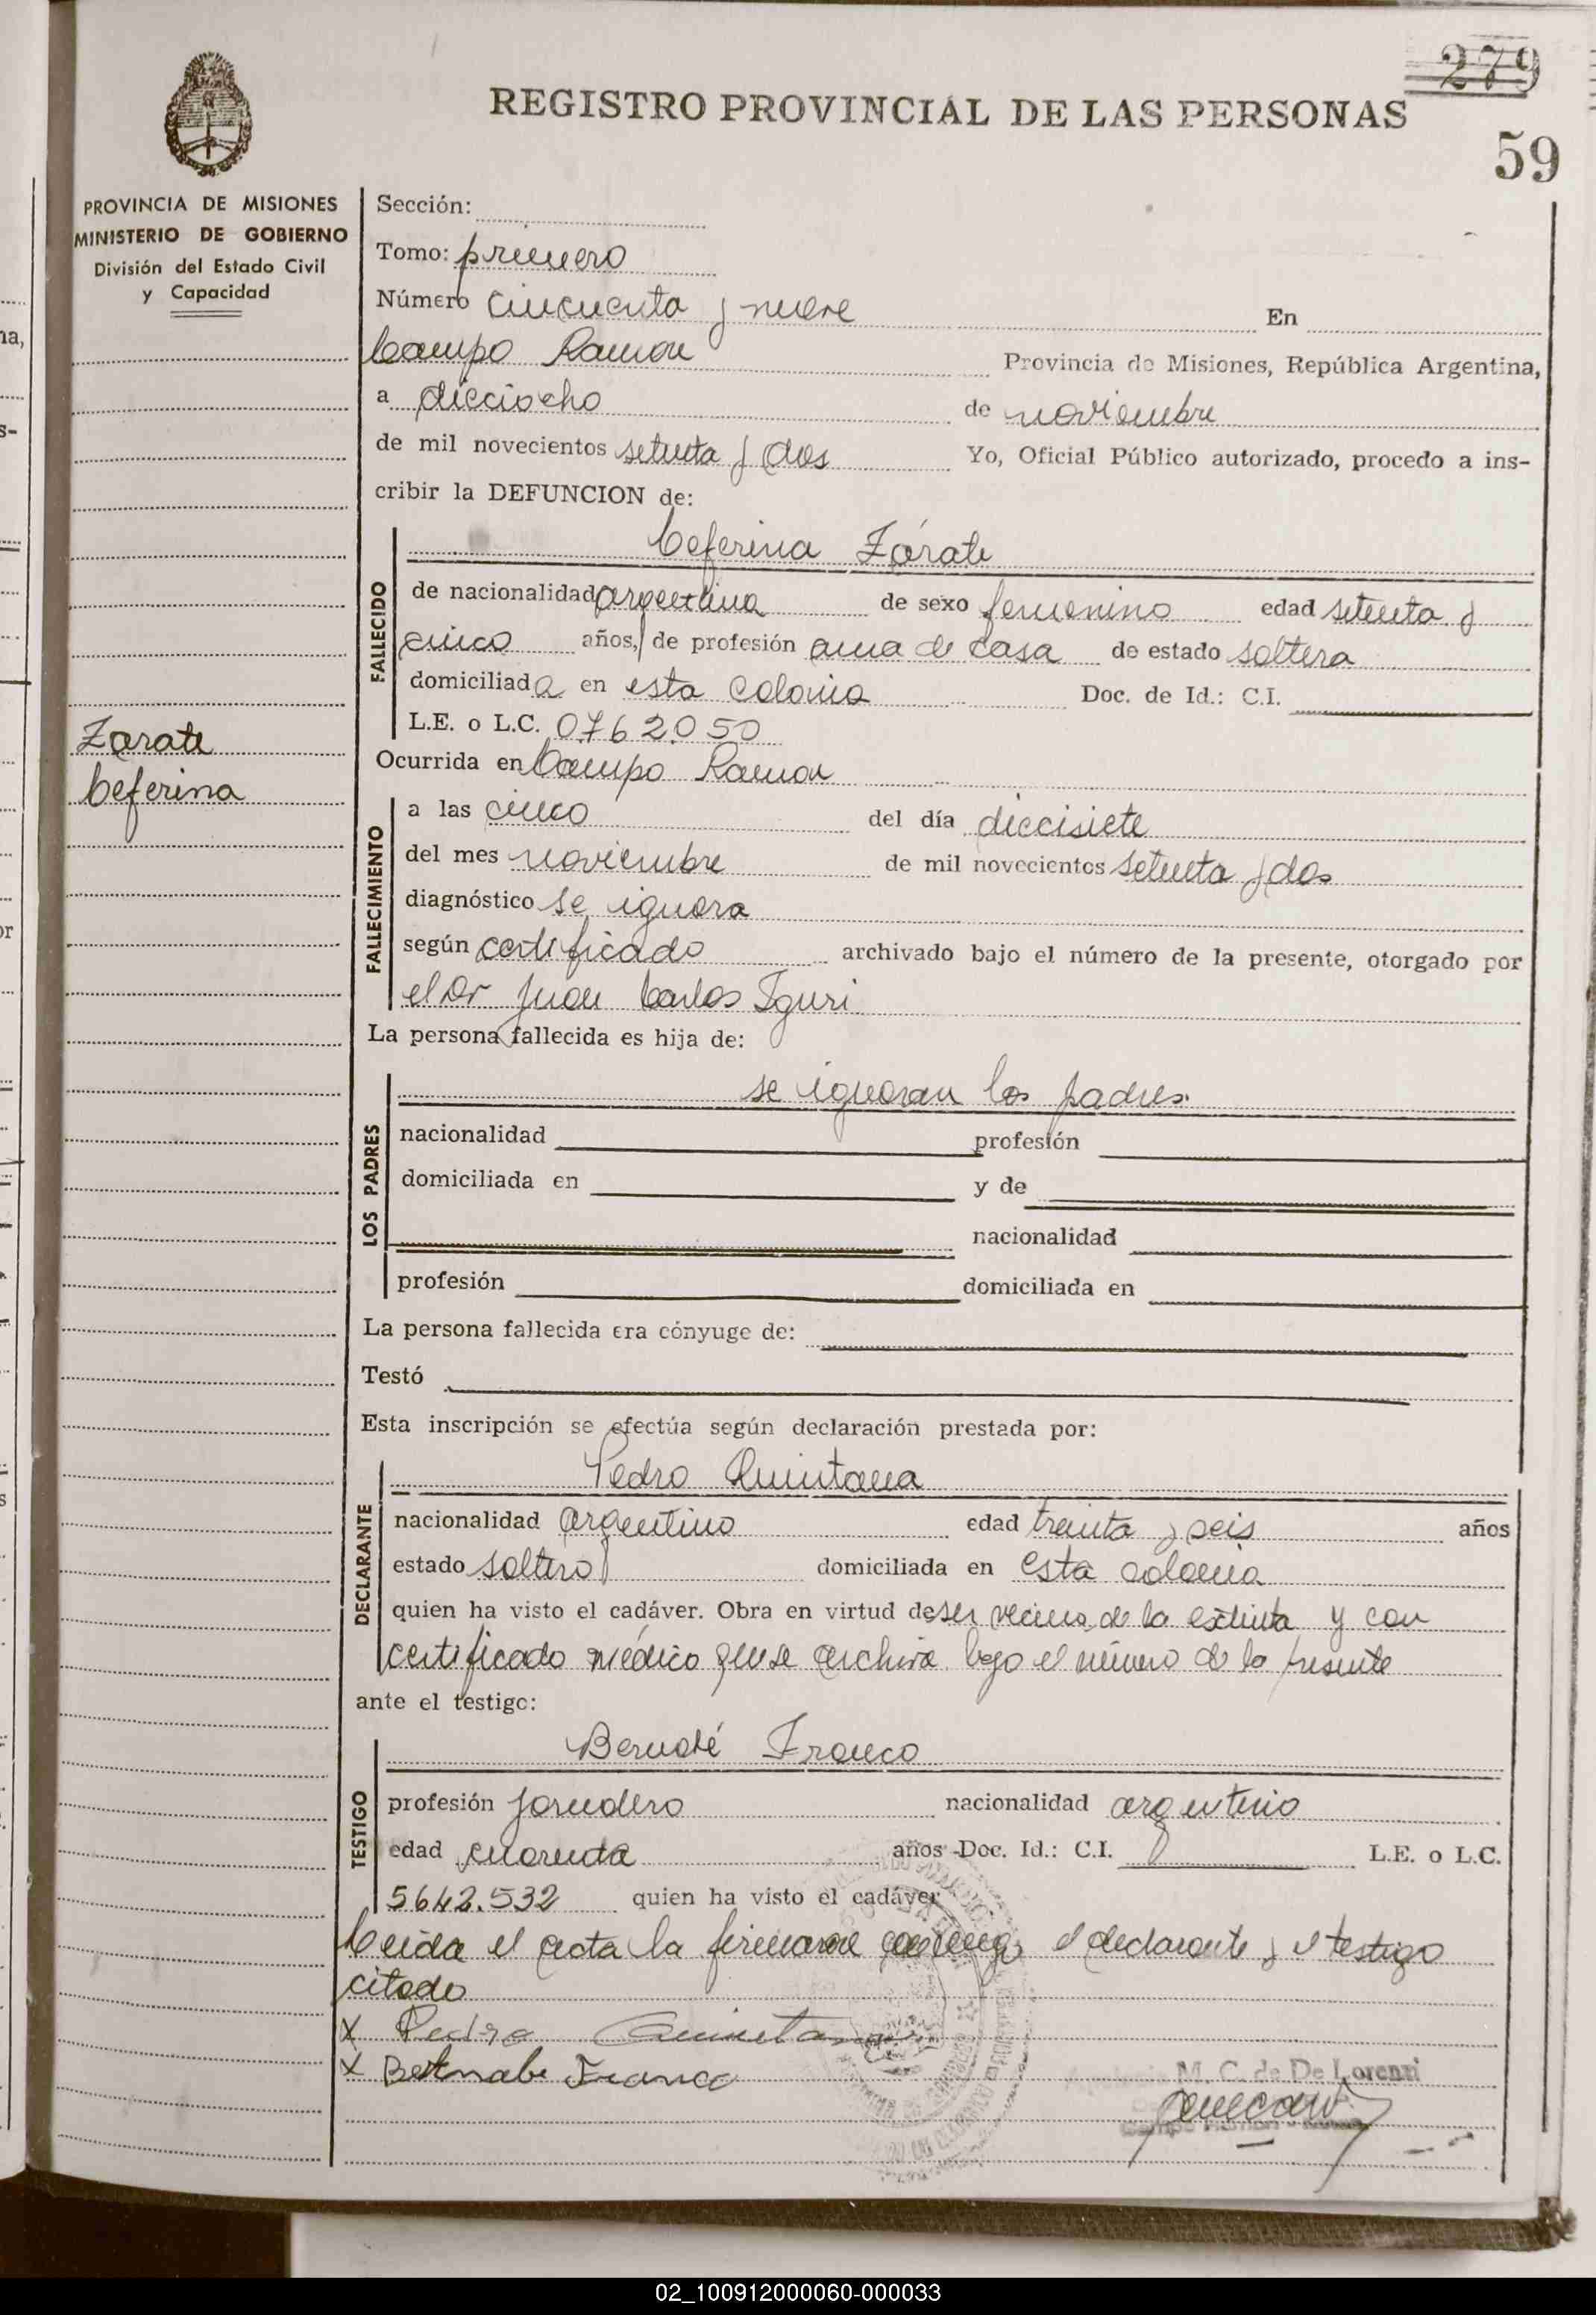 279
REGISTRO PROVINCIAL DE LAS PERSONAS
59
PROVINCIA DE MISIONES
MINISTERIO DE GOBIERNO
División del Estado Civil
y Capacidad
Zarate
Ceferina
Sección:
Tomo: primero
Número cincuenta y nueve En
Campo Ramon Provincia de Misiones, República Argentina,
a dieciocho de noviembre
de mil novecientos setenta y dos Yo, Oficial Público autorizado, procedo a ins-
cribir la DEFUNCION de:
Ceferina Zárate
FALLECIDO
de nacionalidad argentina de sexo femenino edad setenta y
cinco años, de profesión ama de casa de estado soltera
domiciliada en esta colonia Doc. de Id.: C.I.
L.E. o L.C. 0762050
Ocurrida en Campo Ramon
FALLECIMIENTO
a las cinco del día diecisiete
del mes noviembre de mil novecientos setenta y dos
diagnóstico se ignora
según certificado archivado bajo el número de la presente, otorgado por
el Dr Juan Carlos Iguri
La persona fallecida es hija de:
LOS PADRES
se ignoran los padres.
nacionalidad profesión
domiciliada en y de
nacionalidad
profesión domiciliada en
La persona fallecida era cónyuge de:
Testó
Esta inscripción se efectúa según declaración prestada por:
DECLARANTE
Pedro Quintana
nacionalidad argentino edad treinta y seis años
estado soltero domiciliada en esta colonia
quien ha visto el cadáver. Obra en virtud de ser vecino de la extinta y con
certificado médico que se archiva bajo el número de la presente
ante el testigo:
TESTIGO
Bernabé Franco
profesión jornalero nacionalidad argentino
edad cuarenta años Doc. Id.: C.I. L.E. o L.C.
5642.532 quien ha visto el cadáver
Leida el acta la firmaron conmigo el declarante y el testigo
citado
x Pedro Quintana
x Bernabe Franco
M. C. de De Lorenzi
02_100912000060-000033